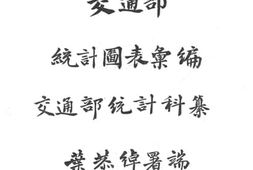 交通部
統計圖表彙編
交通部統計科纂
葉恭綽署端